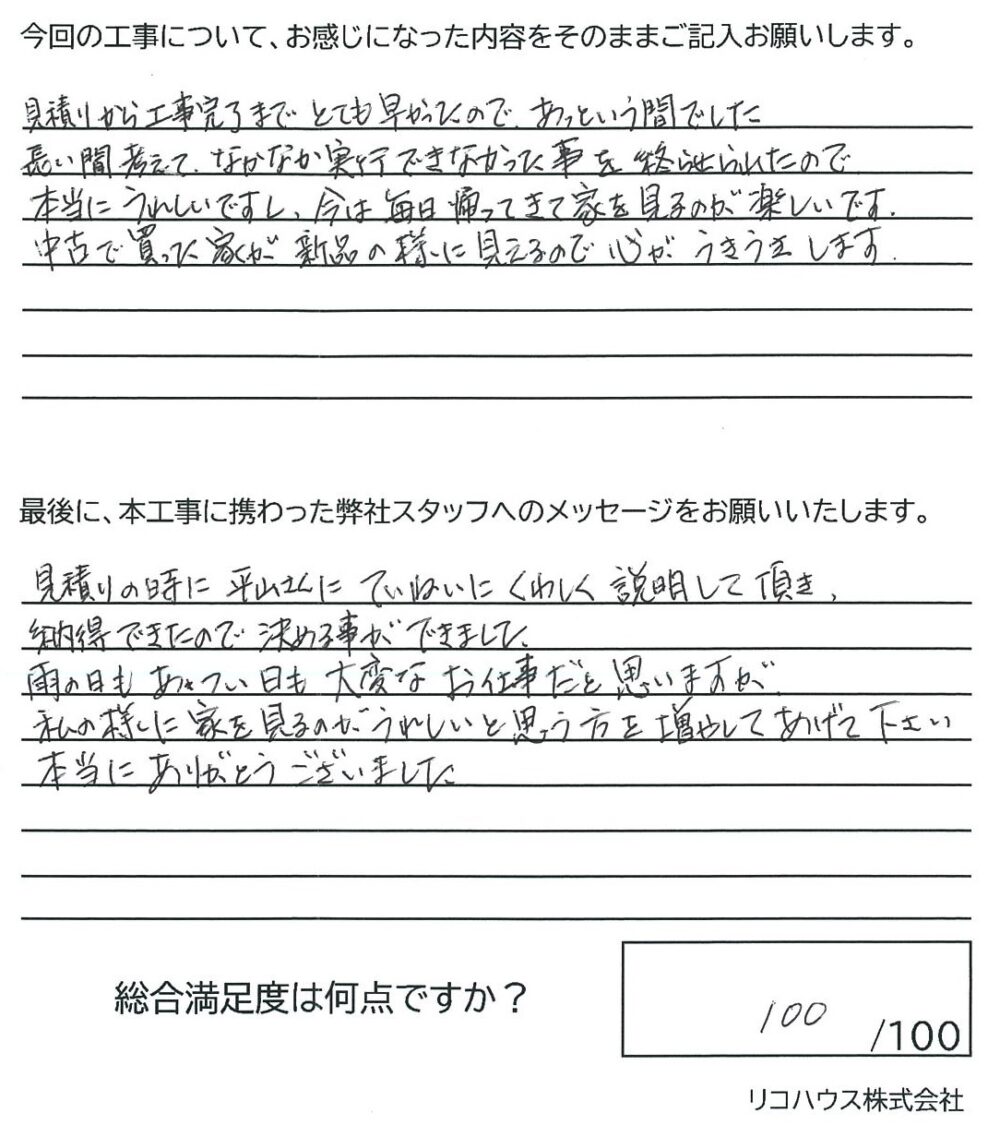 今回の工事について、お感じになった内容をそのままご記入お願いします。
見積りから工事完了まで とても早かったので、あっという間でした
長い間考えて、なかなか実行できなかった事を終らせられたので
本当にうれしいですし、今は毎日帰ってきて家を見るのが楽しいです。
中古で買った家が新品の様に見えるので心がうきうきします。
最後に、本工事に携わった弊社スタッフへのメッセージをお願いいたします。
見積りの時に平山さんにていねいにくわしく説明して頂き、
納得できたので決める事ができました。
雨の日もあつい日も大変なお仕事だと思いますが、
私の様に家を見るのがうれしいと思う方を増やしてあげて下さい
本当にありがとうございました
総合満足度は何点ですか？
100 /100
リコハウス株式会社